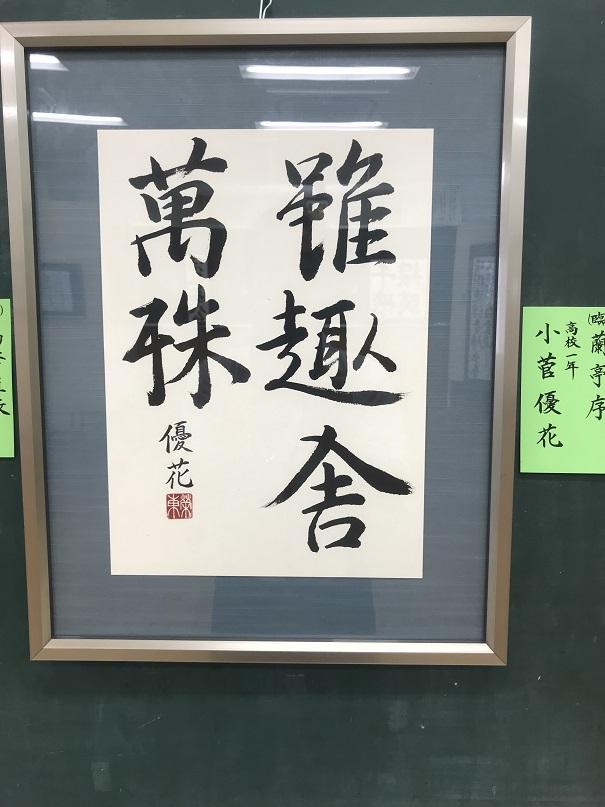 雖趣舎
萬殊
優花
蘭亭序
高校一年
小菅優花